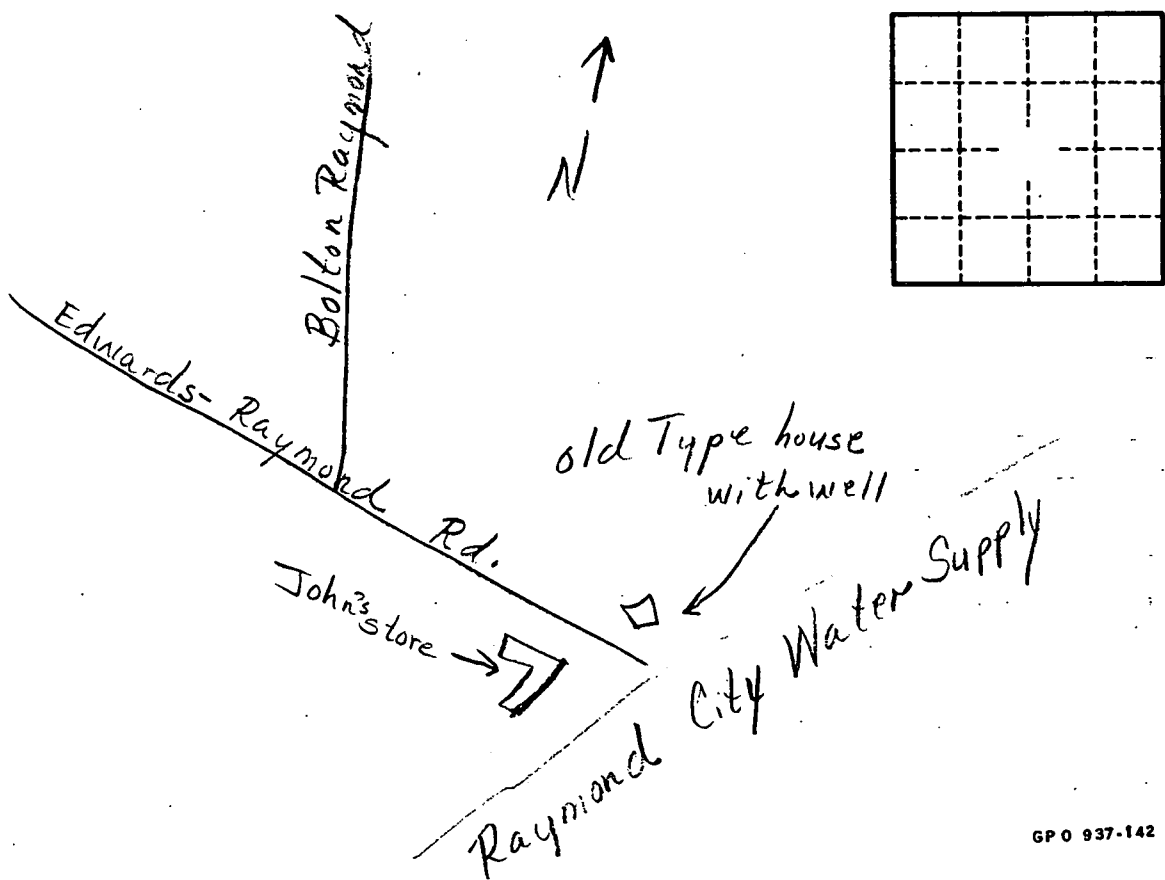 Bolton Raymond
N
Edwards-Raymond Rd.
old Type house
with well
John's
store
Raymond City Water Supply
GPO 937-142